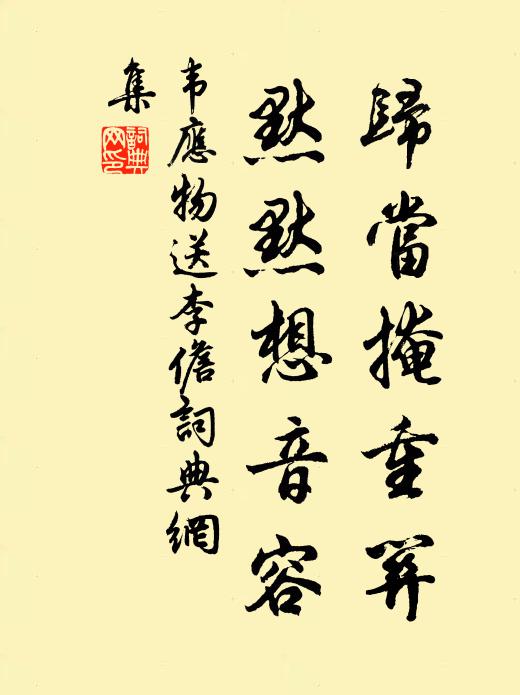 歸當掩重關
默默想音容
韦應物送李儋詞典網
集
詞典網印